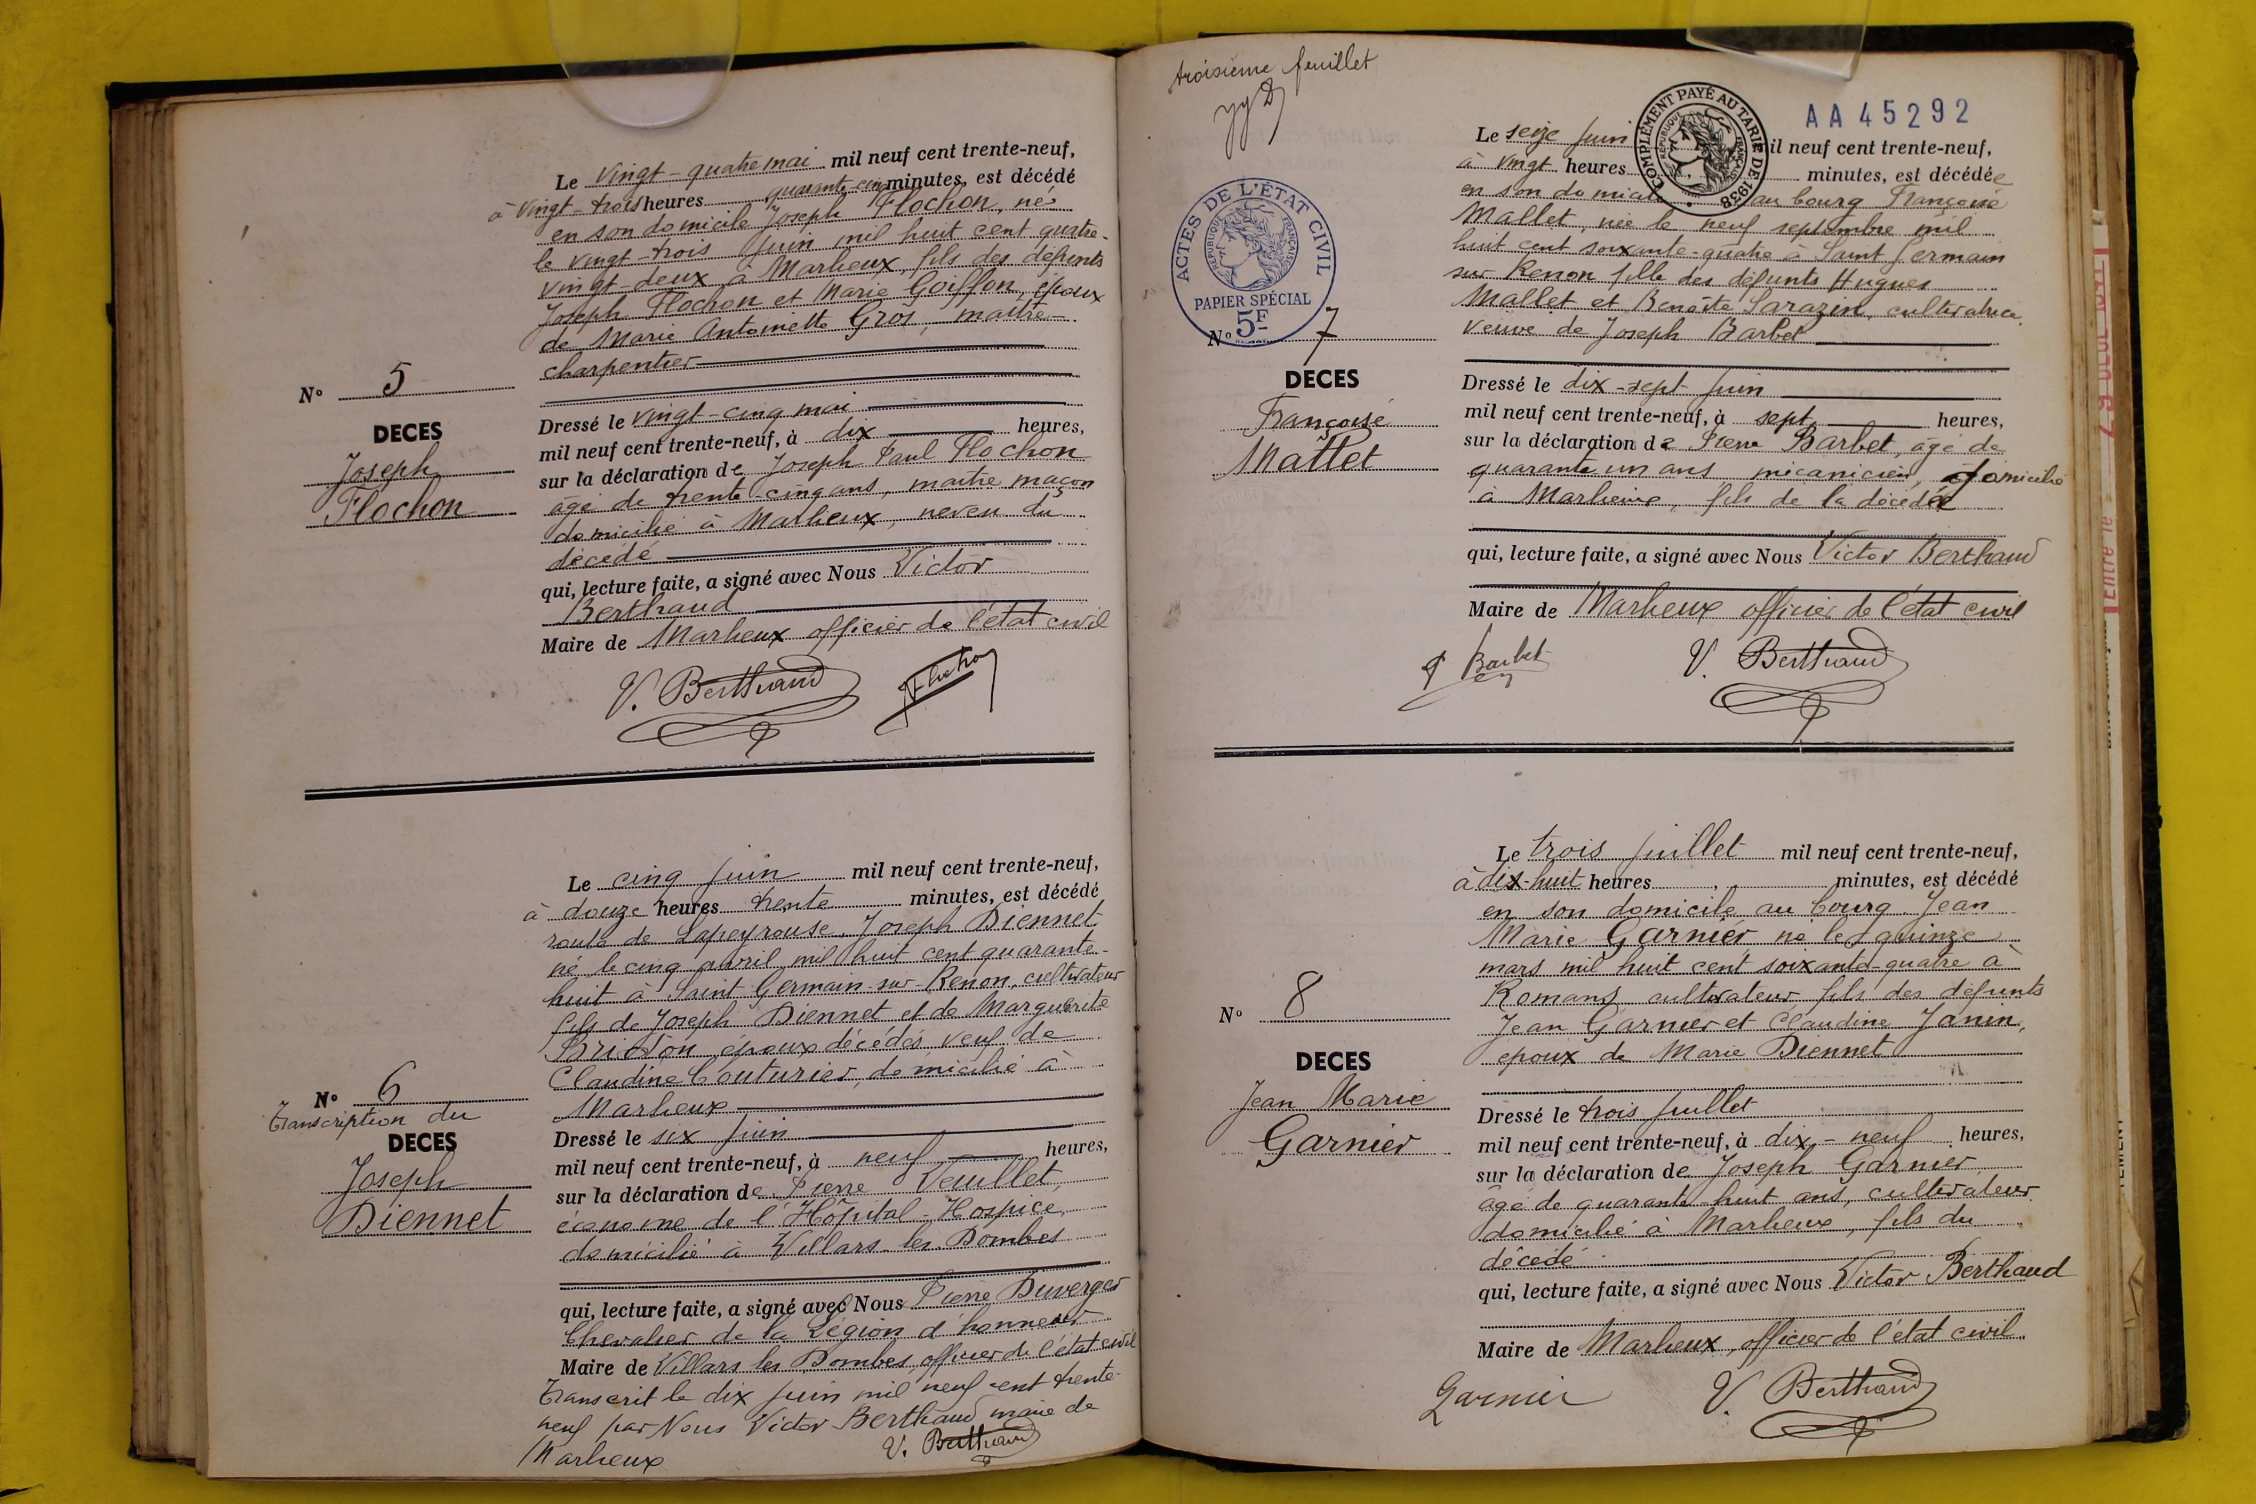 Le vingt-quatre mai mil neuf cent trente-neuf,
à vingt-trois heures quarante-cinq minutes, est décédé
en son domicile Joseph Flochon, né
le vingt-trois juin mil huit cent quatre-
vingt-deux à Marlieux, fils des défunts
Joseph Flochon et Marie Goiffon, époux
de Marie Antoinette Gros, maître-
charpentier
N° 5
DECES
Joseph
Flochon
Dressé le vingt-cinq mai
mil neuf cent trente-neuf, à dix heures,
sur la déclaration de Joseph Paul Flochon
âgé de trente-cinq ans, maître maçon
domicilié à Marlieux, neveu du
décédé
qui, lecture faite, a signé avec Nous Victor
Berthaud
Maire de Marlieux officier de l'état civil
V. Berthaud Flochon
Le cinq juin mil neuf cent trente-neuf,
à douze heures trente minutes, est décédé
route de Lapeyrouse, Joseph Diennet
né le cinq avril mil huit cent quarante-
huit à Saint Germain-sur-Renon, cultivateur
fils de Joseph Diennet et de Marguerite
époux décédés veuf de
Claudine Couturier, domicilié à
Marlieux
N° 6
Transcription du
DECES
Joseph
Diennet
Dressé le six juin
mil neuf cent trente-neuf, à neuf heures,
sur la déclaration de Pierre Veuillet,
économe de l'Hôpital-Hospice,
domicilié à Villars les Dombes
qui, lecture faite, a signé avec Nous Pierre Duverger
Chevalier de la Légion d'honneur
Maire de Villars les Dombes, officier de l'état civil
Transcrit le dix juin mil neuf cent trente-
neuf par Nous Victor Berthaud maire de
Marlieux V. Berthaud
troisième feuillet
AA45292
COMPLÉMENT PAYÉ AU TARIF DE 1938
RÉPUBLIQUE FRANÇAISE
ACTES DE L'ÉTAT CIVIL
RÉPUBLIQUE FRANÇAISE
PAPIER SPÉCIAL
5F
Le seize juin mil neuf cent trente-neuf,
à vingt heures minutes, est décédée
en son domicile au bourg Françoise
Mallet, née le neuf septembre mil
huit cent soixante-quatre à Saint Germain
sur Renon fille des défunts Hugues
Mallet et Benoîte Sarazin, cultivatrice
veuve de Joseph Barbet
N° 7
DECES
Françoise
Mallet
Dressé le dix-sept juin
mil neuf cent trente-neuf, à sept heures,
sur la déclaration de Pierre Barbet, âgé de
quarante un ans mécanicien, domicilié
à Marlieux, fils de la décédée
qui, lecture faite, a signé avec Nous Victor Berthaud
Maire de Marlieux officier de l'état civil
P Barbet V. Berthaud
Le trois juillet mil neuf cent trente-neuf,
à dix-huit heures minutes, est décédé
en son domicile au bourg Jean
Marie Garnier né le quinze
mars mil huit cent soixante-quatre à
Romans cultivateur fils des défunts
Jean Garnier et Claudine Janin,
époux de Marie Diennet
N° 8
DECES
Jean Marie
Garnier
Dressé le trois juillet
mil neuf cent trente-neuf, à dix-neuf heures,
sur la déclaration de Joseph Garnier,
âgé de quarante huit ans, cultivateur
domicilié à Marlieux, fils du
décédé
qui, lecture faite, a signé avec Nous Victor Berthaud
Maire de Marlieux, officier de l'état civil
Garnier V. Berthaud